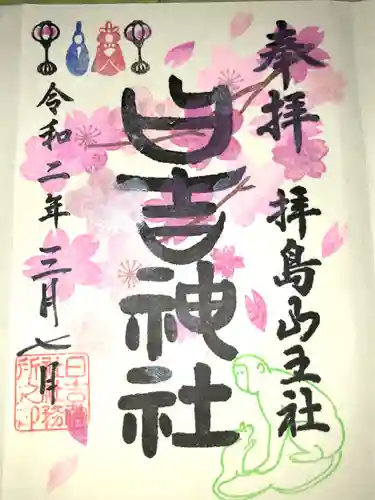 奉拝
拝島山王社
日吉神社
令和二年三月七日
日吉神
社務
所之印